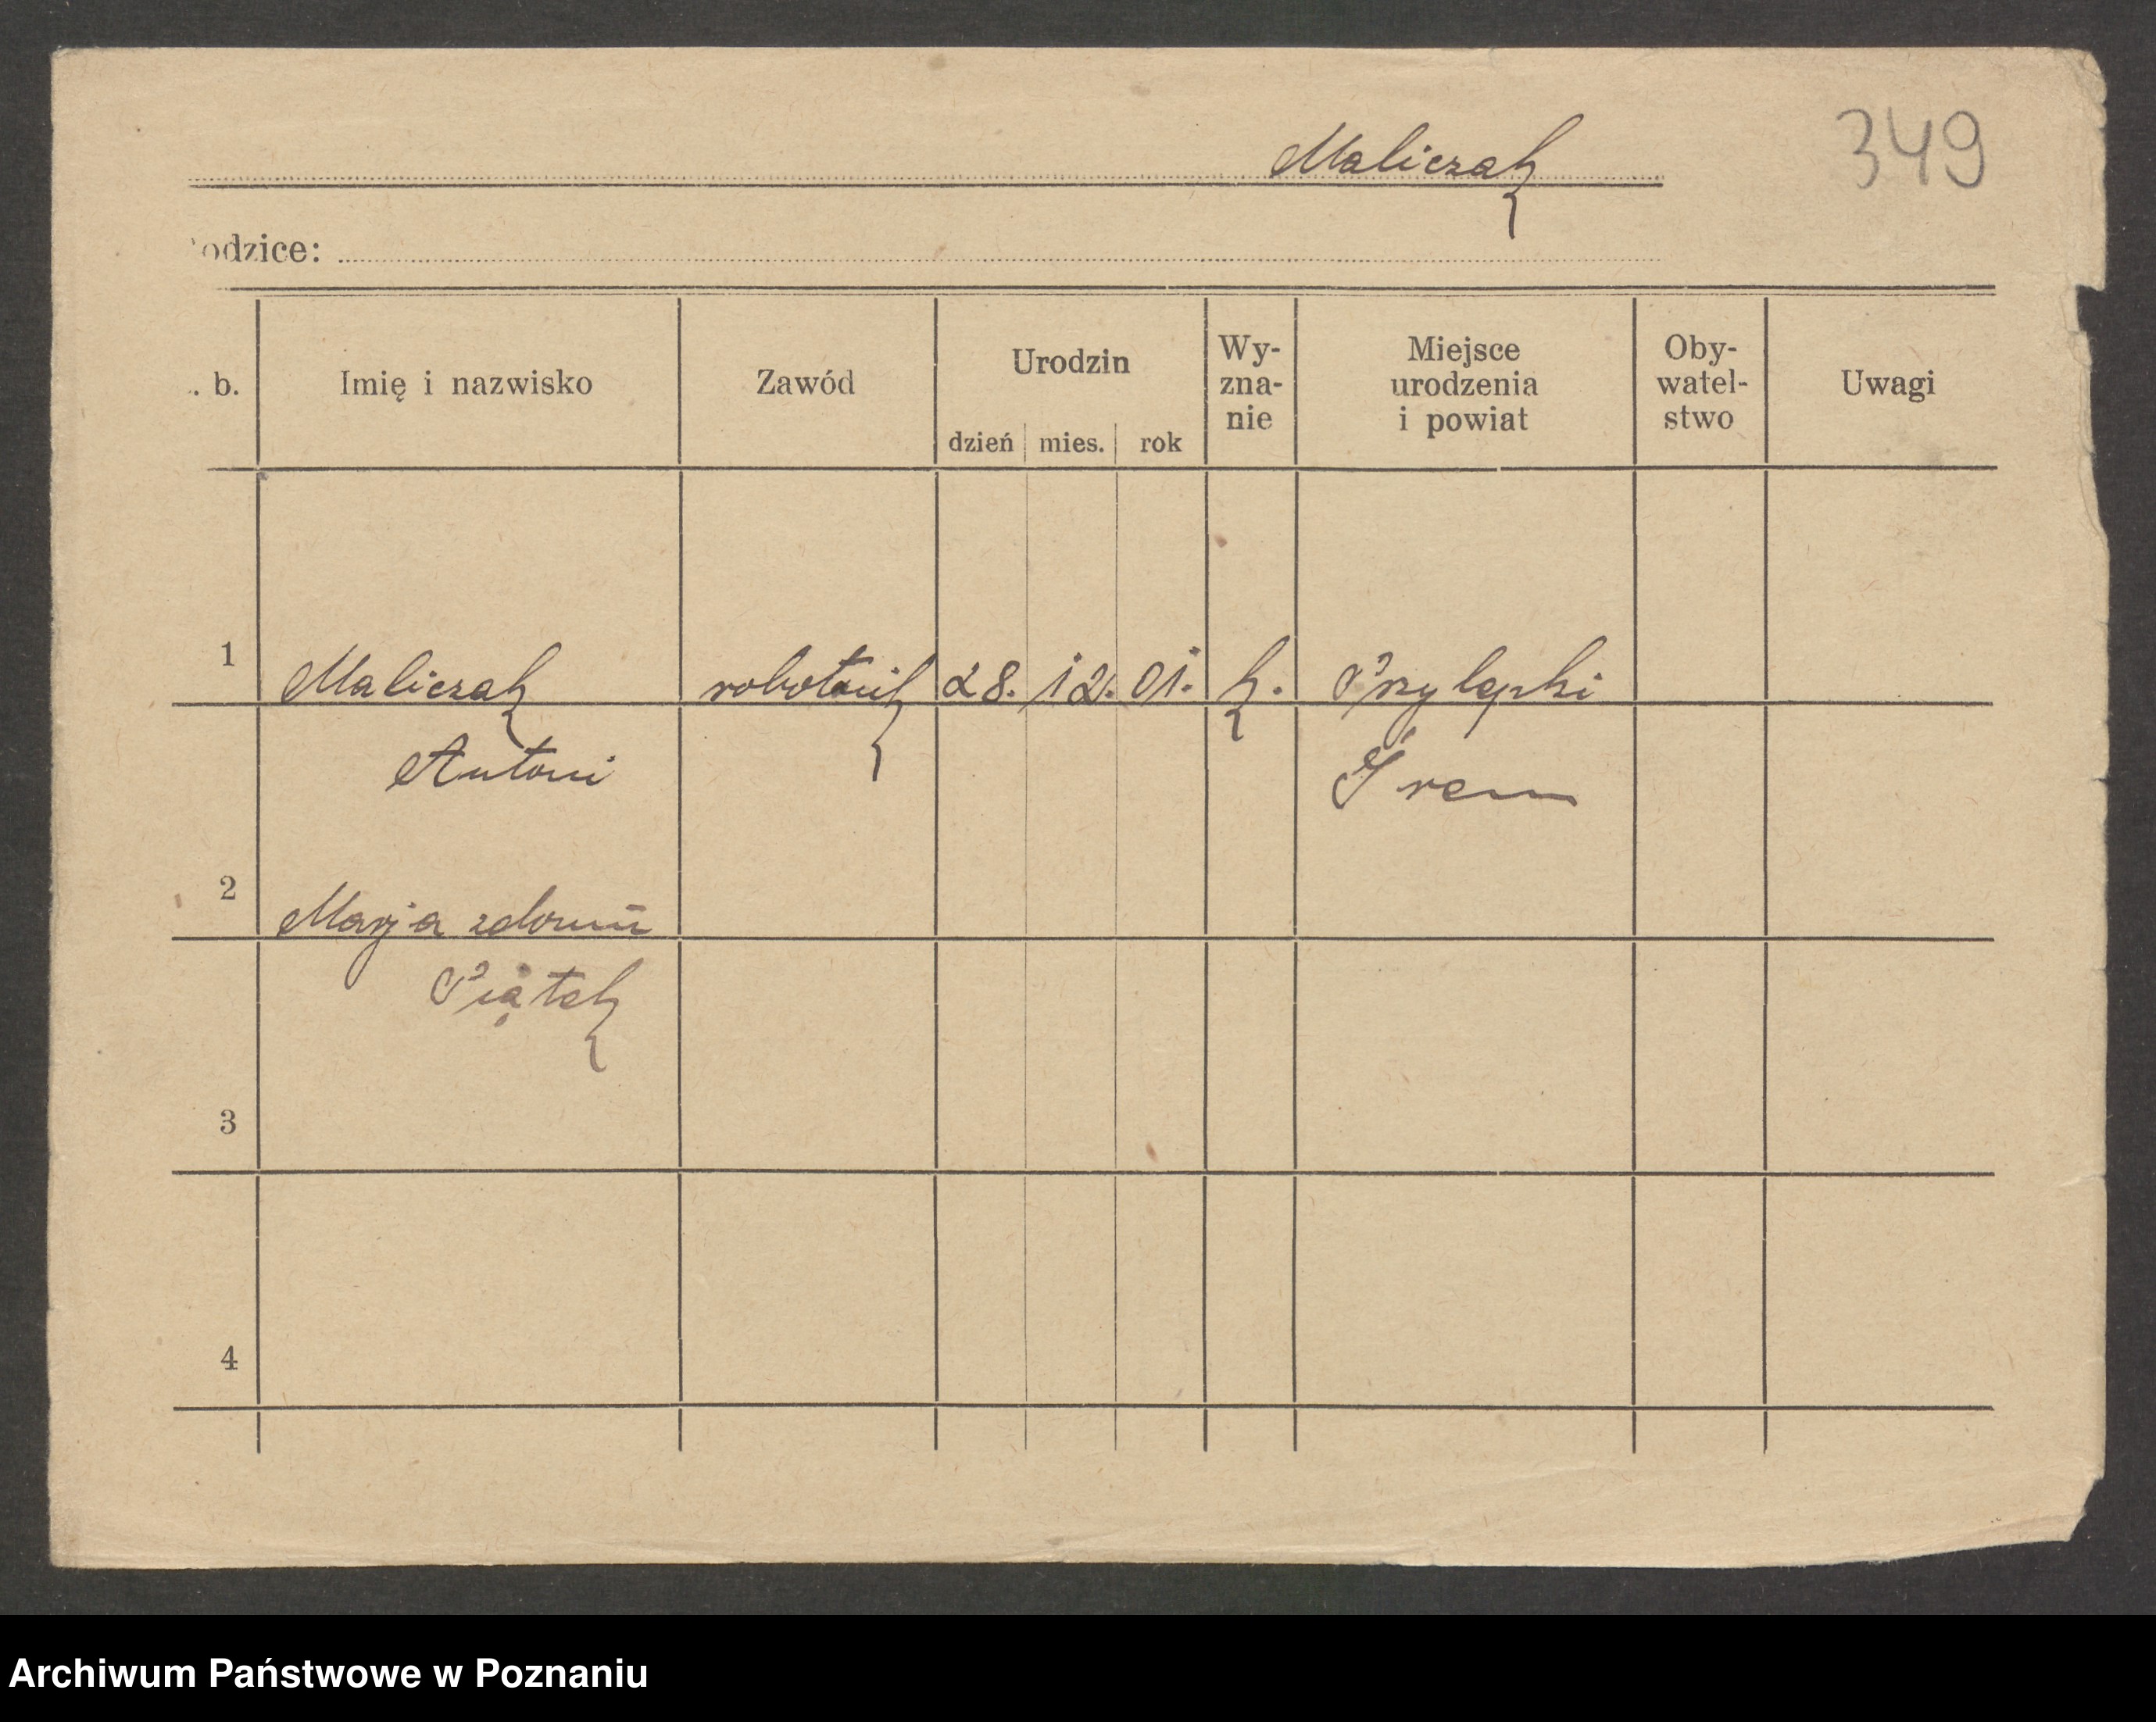 Maliczak
349
odzice:
. b.
Imię i nazwisko
Zawód
Urodzin
dzień mies. rok
Wy-
zna-
nie
Miejsce
urodzenia
i powiat
Oby-
watel-
stwo
Uwagi
1 Maliczak robotnik 28. 12. 01. k. Przylepki
Antoni Śrem
2 Marja zdomu
Piątek
3
4
Archiwum Państwowe w Poznaniu